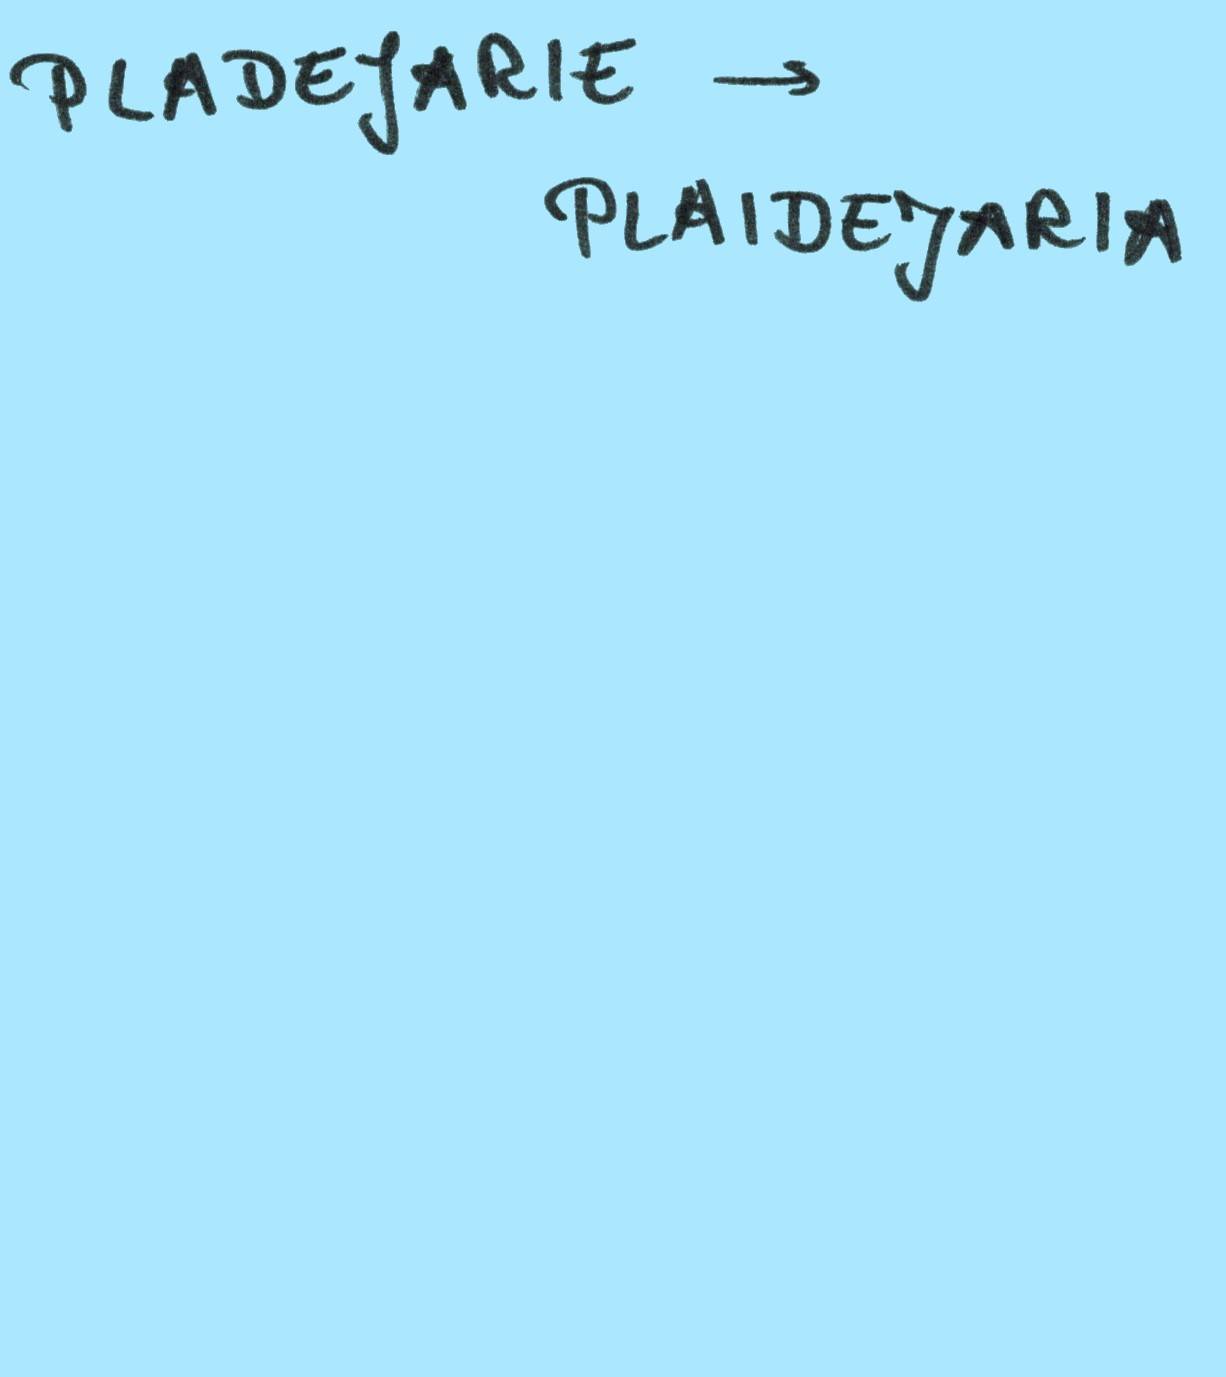 PLADEJARIE →
PLAIDEJARIA